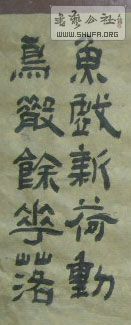 魚戲新荷動
鳥散餘花落
書藝公社
WWW.SHUFA.ORG